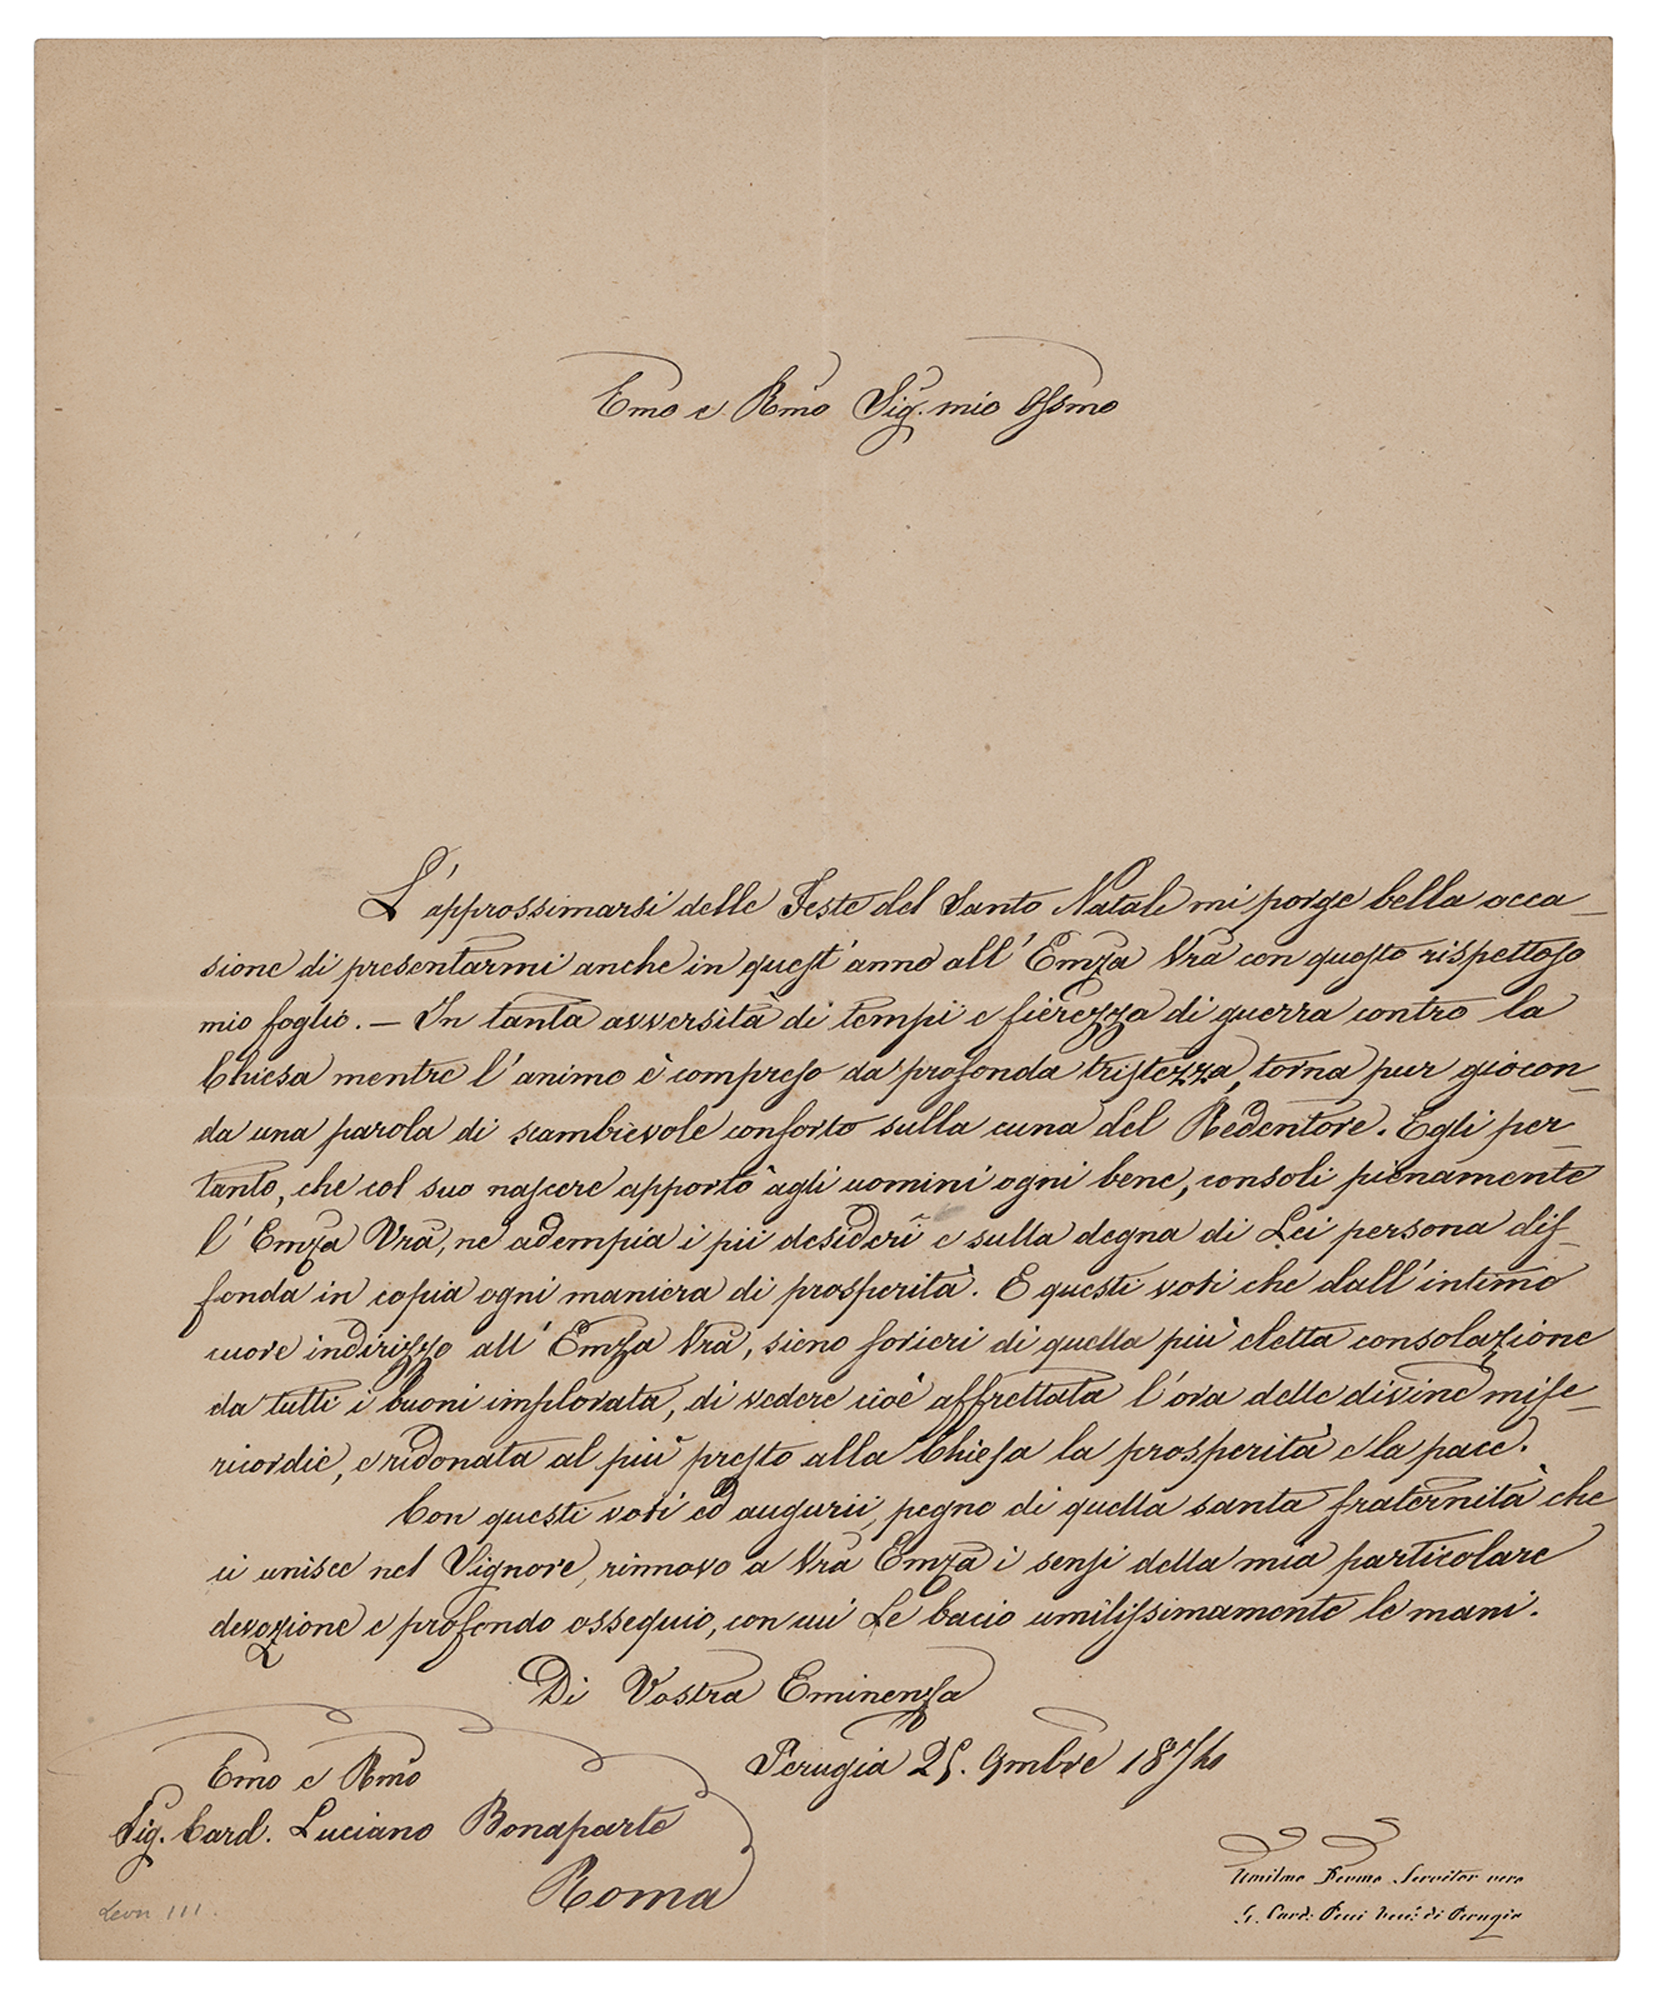 Emo e Rmo Sig. mio Ossmo
L'approssimarsi delle Feste del Santo Natale mi porge bella occa_
sione di presentarmi anche in quest'anno all'Emza Vra con questo rispettoso
mio foglio. — In tanta avversità di tempi e fierezza di guerra contro la
Chiesa mentre l'animo è compreso da profonda tristezza, torna pur giocon_
da una parola di scambievole conforto sulla cuna del Redentore. Egli per_
tanto, che col suo nascere apportò agli uomini ogni bene, consoli pienamente
l'Emza Vra, ne adempia i pii desideri e sulla degna di Lei persona dif_
fonda in copia ogni maniera di prosperità. E questi voti che dall'intimo
cuore indirizzo all'Emza Vra, sieno forieri di quella più eletta consolazione
da tutti i buoni implorata, di vedere cioè affrettata l'ora delle divine mise_
ricordie, e ridonata al più presto alla Chiesa la prosperità e la pace.
Con questi voti ed augurii, pegno di quella santa fraternità che
ci unisce nel Signore, rinnovo a Vra Emza i sensi della mia particolare
devozione e profondo ossequio, con cui Le bacio umilissimamente le mani.
Di Vostra Eminenza
Perugia 25. 9mbre
Emo e Rmo
Sig. Card. Luciano Bonaparte
Roma
Umilmo Devmo Servitor vero
G. Card: Pecci Vesc: di Perugia
Leon III.